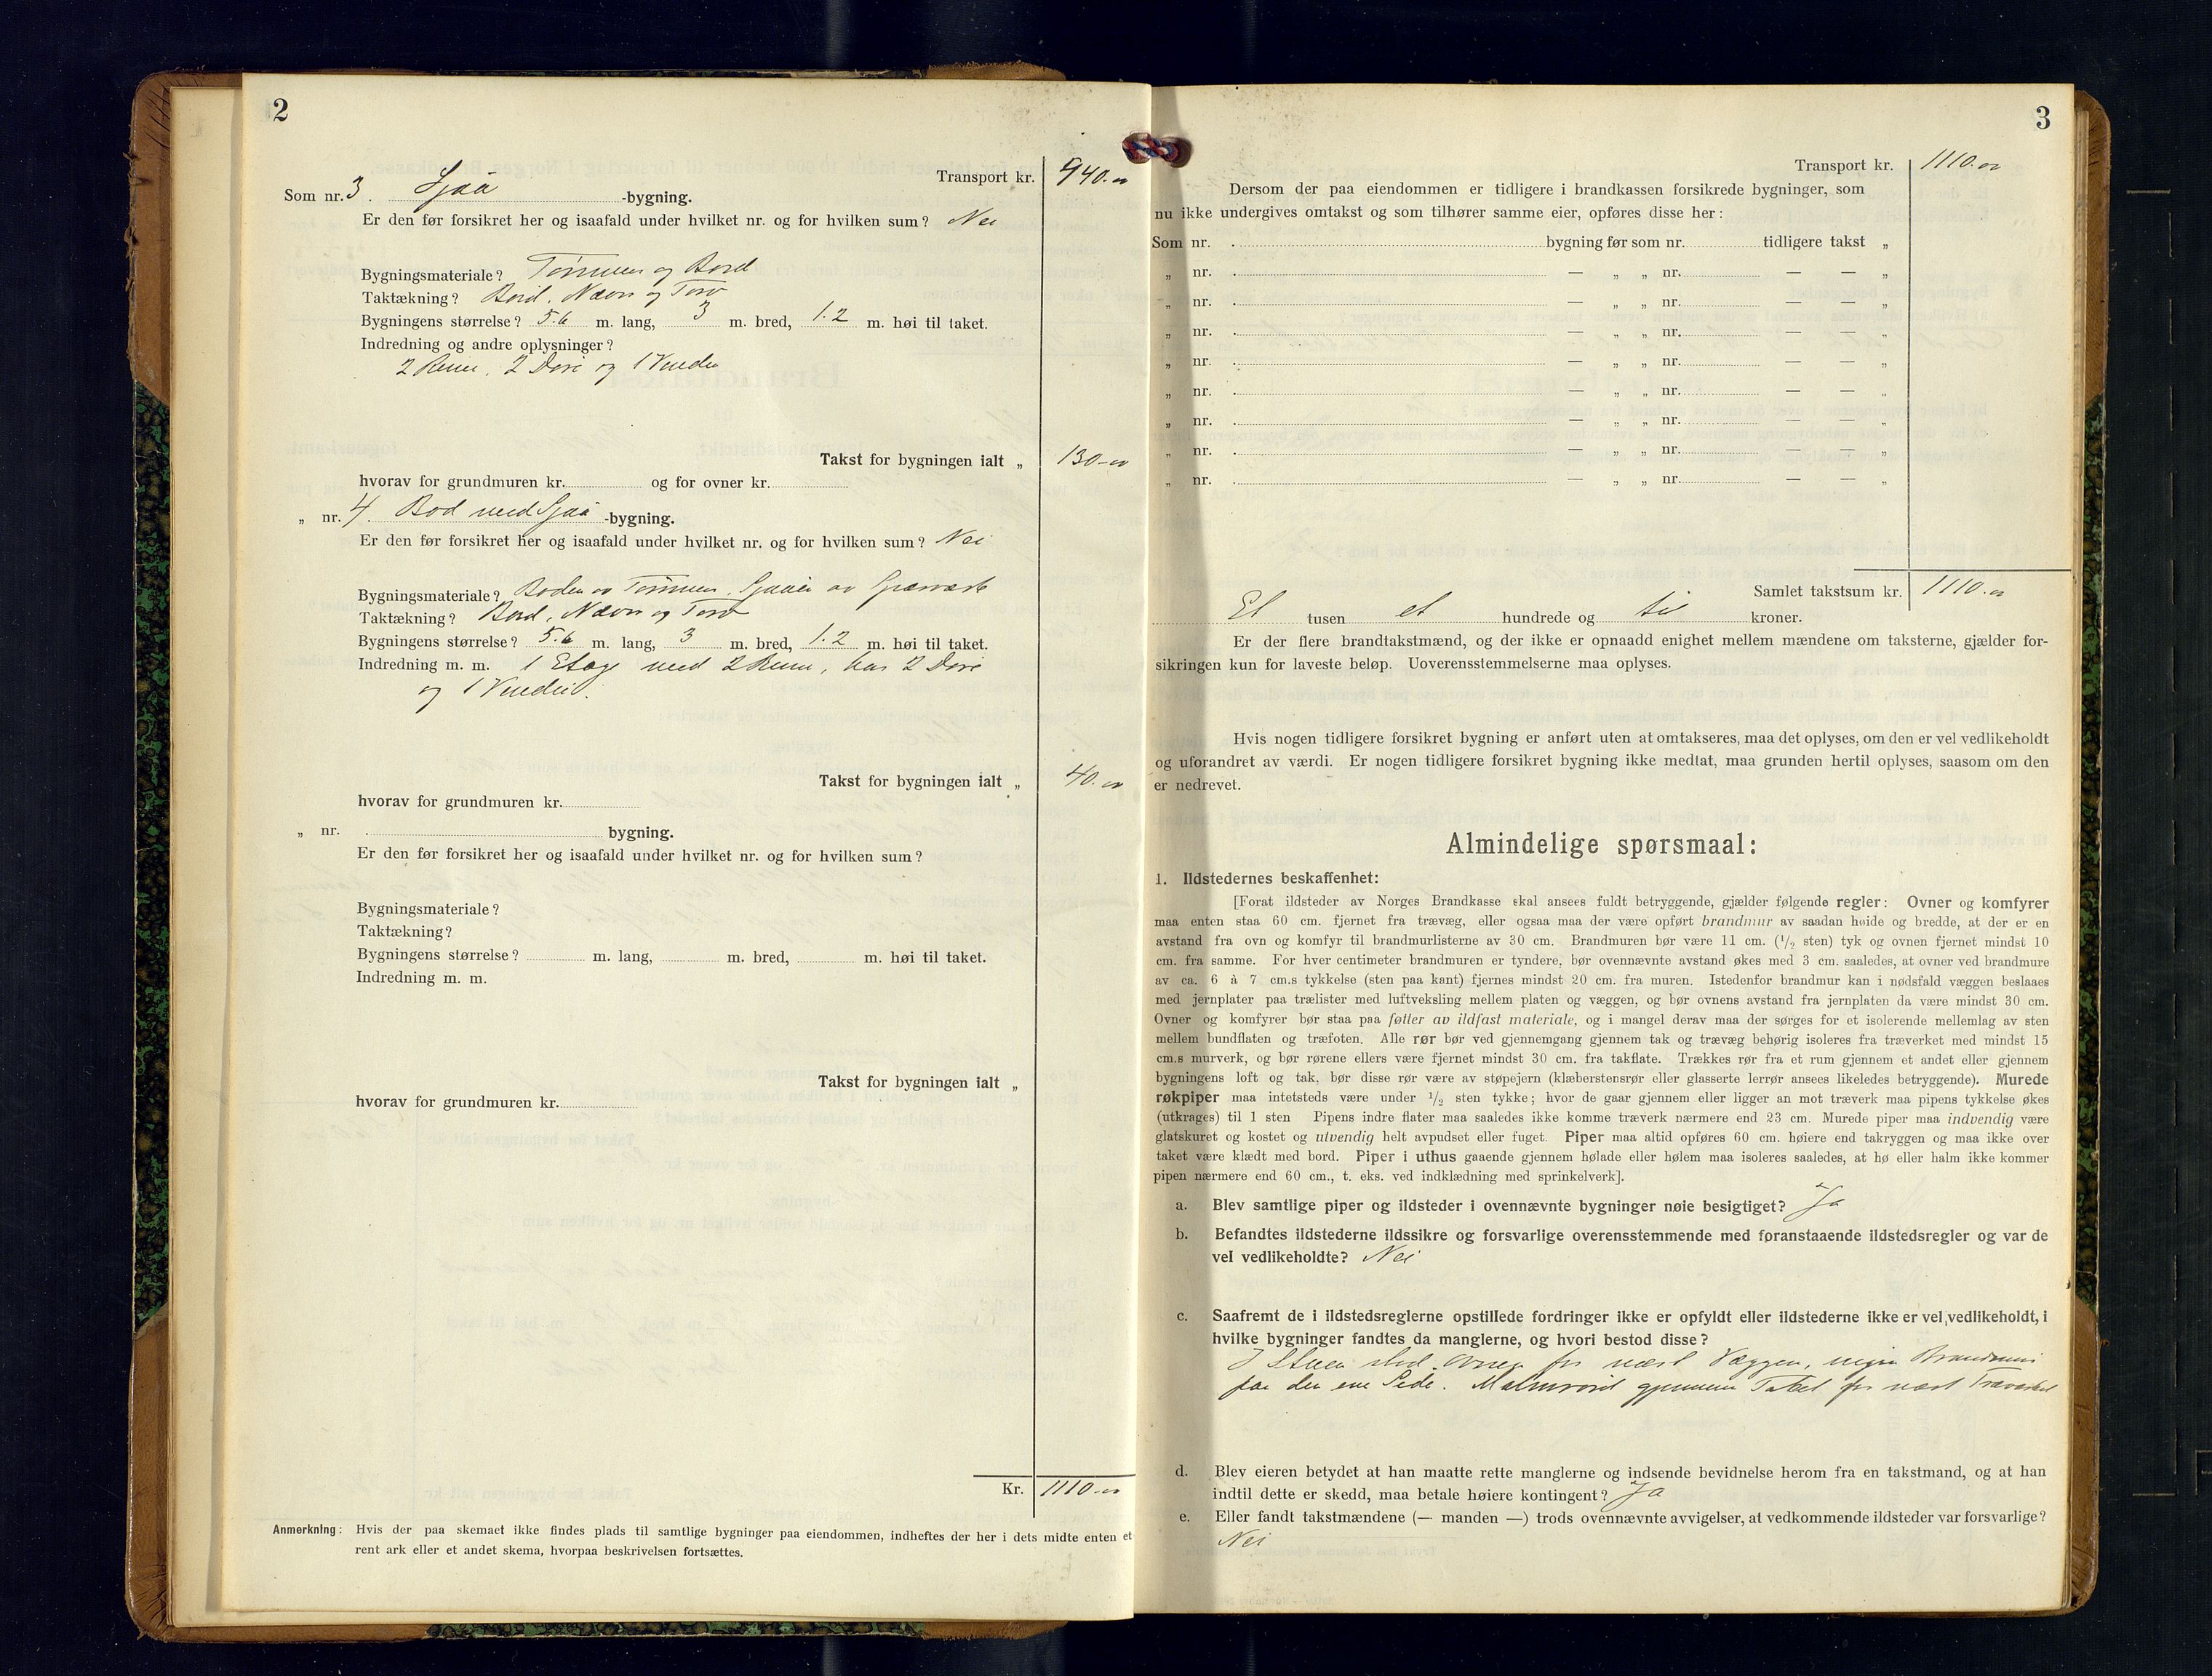 2
Transport kr. 940.00
Som nr. 3. Sjaa -bygning.
Er den før forsikret her og isaafald under hvilket nr. og for hvilken sum? Nei
Bygningsmateriale? Tømmer og Bord
Taktækning? Bord, Næver og Torv
Bygningens størrelse? 5.6 m. lang, 3 m. bred, 1.2 m. høi til taket.
Indredning og andre oplysninger?
2 Rum, 2 Døre og 1 Vindu
Takst for bygningen ialt „ 130.00
hvorav for grundmuren kr. og for ovner kr.
„ nr. 4. Bod med Sjaa -bygning.
Er den før forsikret her og isaafald under hvilket nr. og for hvilken sum? Nei
Bygningsmateriale? Boden av Tømmer, Sjaaen av
Taktækning? Bord, Næver og Torv
Bygningens størrelse? 5.6 m. lang, 3 m. bred, 1.2 m. høi til taket.
Indredning m. m. 1 Etage med 2 Rum, har 2 Døre
og 1 Vindu.
Takst for bygningen ialt „ 40.00
hvorav for grundmuren kr.
„ nr. . bygning.
Er den før forsikret her og isaafald under hvilket nr. og for hvilken sum?
Bygningsmateriale?
Taktækning?
Bygningens størrelse? m. lang, m. bred, m. høi til taket.
Indredning m. m.
Takst for bygningen ialt „
hvorav for grundmuren kr.
Kr. 1110.00
Anmerkning: Hvis der paa skemaet ikke findes plads til samtlige bygninger paa eiendommen, indheftes der her i dets midte enten et
rent ark eller et andet skema, hvorpaa beskrivelsen fortsættes.
3
Transport kr. 1110.00
Dersom der paa eiendommen er tidligere i brandkassen forsikrede bygninger, som
nu ikke undergives omtakst og som tilhører samme eier, opføres disse her:
Som nr. . bygning før som nr. tidligere takst „
„ nr. . — „ „ nr. — — „
„ nr. . — „ „ nr. — — „
„ nr. . — „ „ nr. — — „
„ nr. . — „ „ nr. — — „
„ nr. . — „ „ nr. — — „
„ nr. . — „ „ nr. — — „
„ nr. . — „ „ nr. — — „
„ nr. . — „ „ nr. — — „
Samlet takstsum kr. 1110.00
Et tusen et hundrede og ti kroner.
Er der flere brandtakstmænd, og der ikke er opnaadd enighet mellem mændene om taksterne, gjælder for-
sikringen kun for laveste beløp. Uoverensstemmelserne maa oplyses.
Hvis nogen tidligere forsikret bygning er anført uten at omtakseres, maa det oplyses, om den er vel vedlikeholdt
og uforandret av værdi. Er nogen tidligere forsikret bygning ikke medtat, maa grunden hertil oplyses, saasom om den
er nedrevet.
Almindelige spørsmaal:
1. Ildstedernes beskaffenhet:
[Forat ildsteder av Norges Brandkasse skal ansees fuldt betryggende, gjælder følgende regler: Ovner og komfyrer
maa enten staa 60 cm. fjernet fra trævæg, eller ogsaa maa der være opført brandmur av saadan høide og bredde, at der er en
avstand fra ovn og komfyr til brandmurlisterne av 30 cm. Brandmuren bør være 11 cm. (1/2 sten) tyk og ovnen fjernet mindst 10
cm. fra samme. For hver centimeter brandmuren er tyndere, bør ovennævnte avstand økes med 3 cm. saaledes, at ovner ved brandmure
av ca. 6 à 7 cm.s tykkelse (sten paa kant) fjernes mindst 20 cm. fra muren. Istedenfor brandmur kan i nødsfald væggen beslaaes
med jernplater paa trælister med luftveksling mellem platen og væggen, og bør ovnens avstand fra jernplaten da være mindst 30 cm.
Ovner og komfyrer bør staa paa føtter av ildfast materiale, og i mangel derav maa der sørges for et isolerende mellemlag av sten
mellem bundflaten og træfoten. Alle rør bør ved gjennemgang gjennem tak og trævæg behørig isoleres fra træverket med mindst 15
cm.s murverk, og bør rørene ellers være fjernet mindst 30 cm. fra takflate. Trækkes rør fra et rum gjennem et andet eller gjennem
bygningens loft og tak, bør disse rør være av støpejern (klæberstensrør eller glasserte lerrør ansees likeledes betryggende). Murede
røkpiper maa intetsteds være under 1/2 sten tykke; hvor de gaar gjennem eller ligger an mot træverk maa pipens tykkelse økes
(utkrages) til 1 sten Pipens indre flater maa saaledes ikke komme træverk nærmere end 23 cm. Murede piper maa indvendig være
glatskuret og kostet og utvendig helt avpudset eller fuget. Piper maa altid opføres 60 cm. høiere end takryggen og maa ikke over
taket være klædt med bord. Piper i uthus gaaende gjennem hølade eller hølem maa isoleres saaledes, at hø eller halm ikke kommer
pipen nærmere end 60 cm., t. eks. ved indklædning med sprinkelverk].
a. Blev samtlige piper og ildsteder i ovennævnte bygninger nøie besigtiget? Ja
b. Befandtes ildstederne ildssikre og forsvarlige overensstemmende med foranstaaende ildstedsregler og var de
vel vedlikeholdte? Nei
c. Saafremt de i ildstedsreglerne opstillede fordringer ikke er opfyldt eller ildstederne ikke er vel vedlikeholdt, i
hvilke bygninger fandtes da manglerne, og hvori bestod disse?
I Stuen stod Ovnen for nært Væggen, ingen Brandmur
paa den ene Side. Malmrøret gjennem Taket for nært Træverket
d. Blev eieren betydet at han maatte rette manglerne og indsende bevidnelse herom fra en takstmand, og at han
indtil dette er skedd, maa betale høiere kontingent? Ja
e. Eller fandt takstmændene (— manden —) trods ovennævnte avvigelser, at vedkommende ildsteder var forsvarlige?
Nei